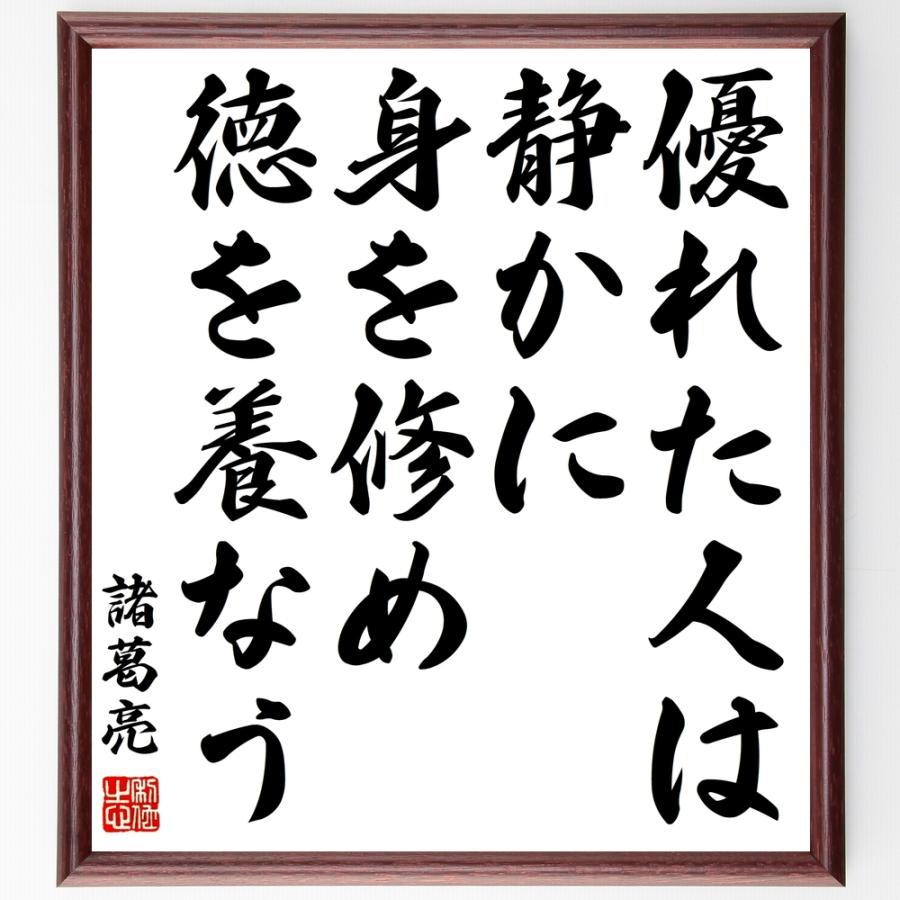 優れた人は
静かに
身を修め
徳を養なう
諸葛亮